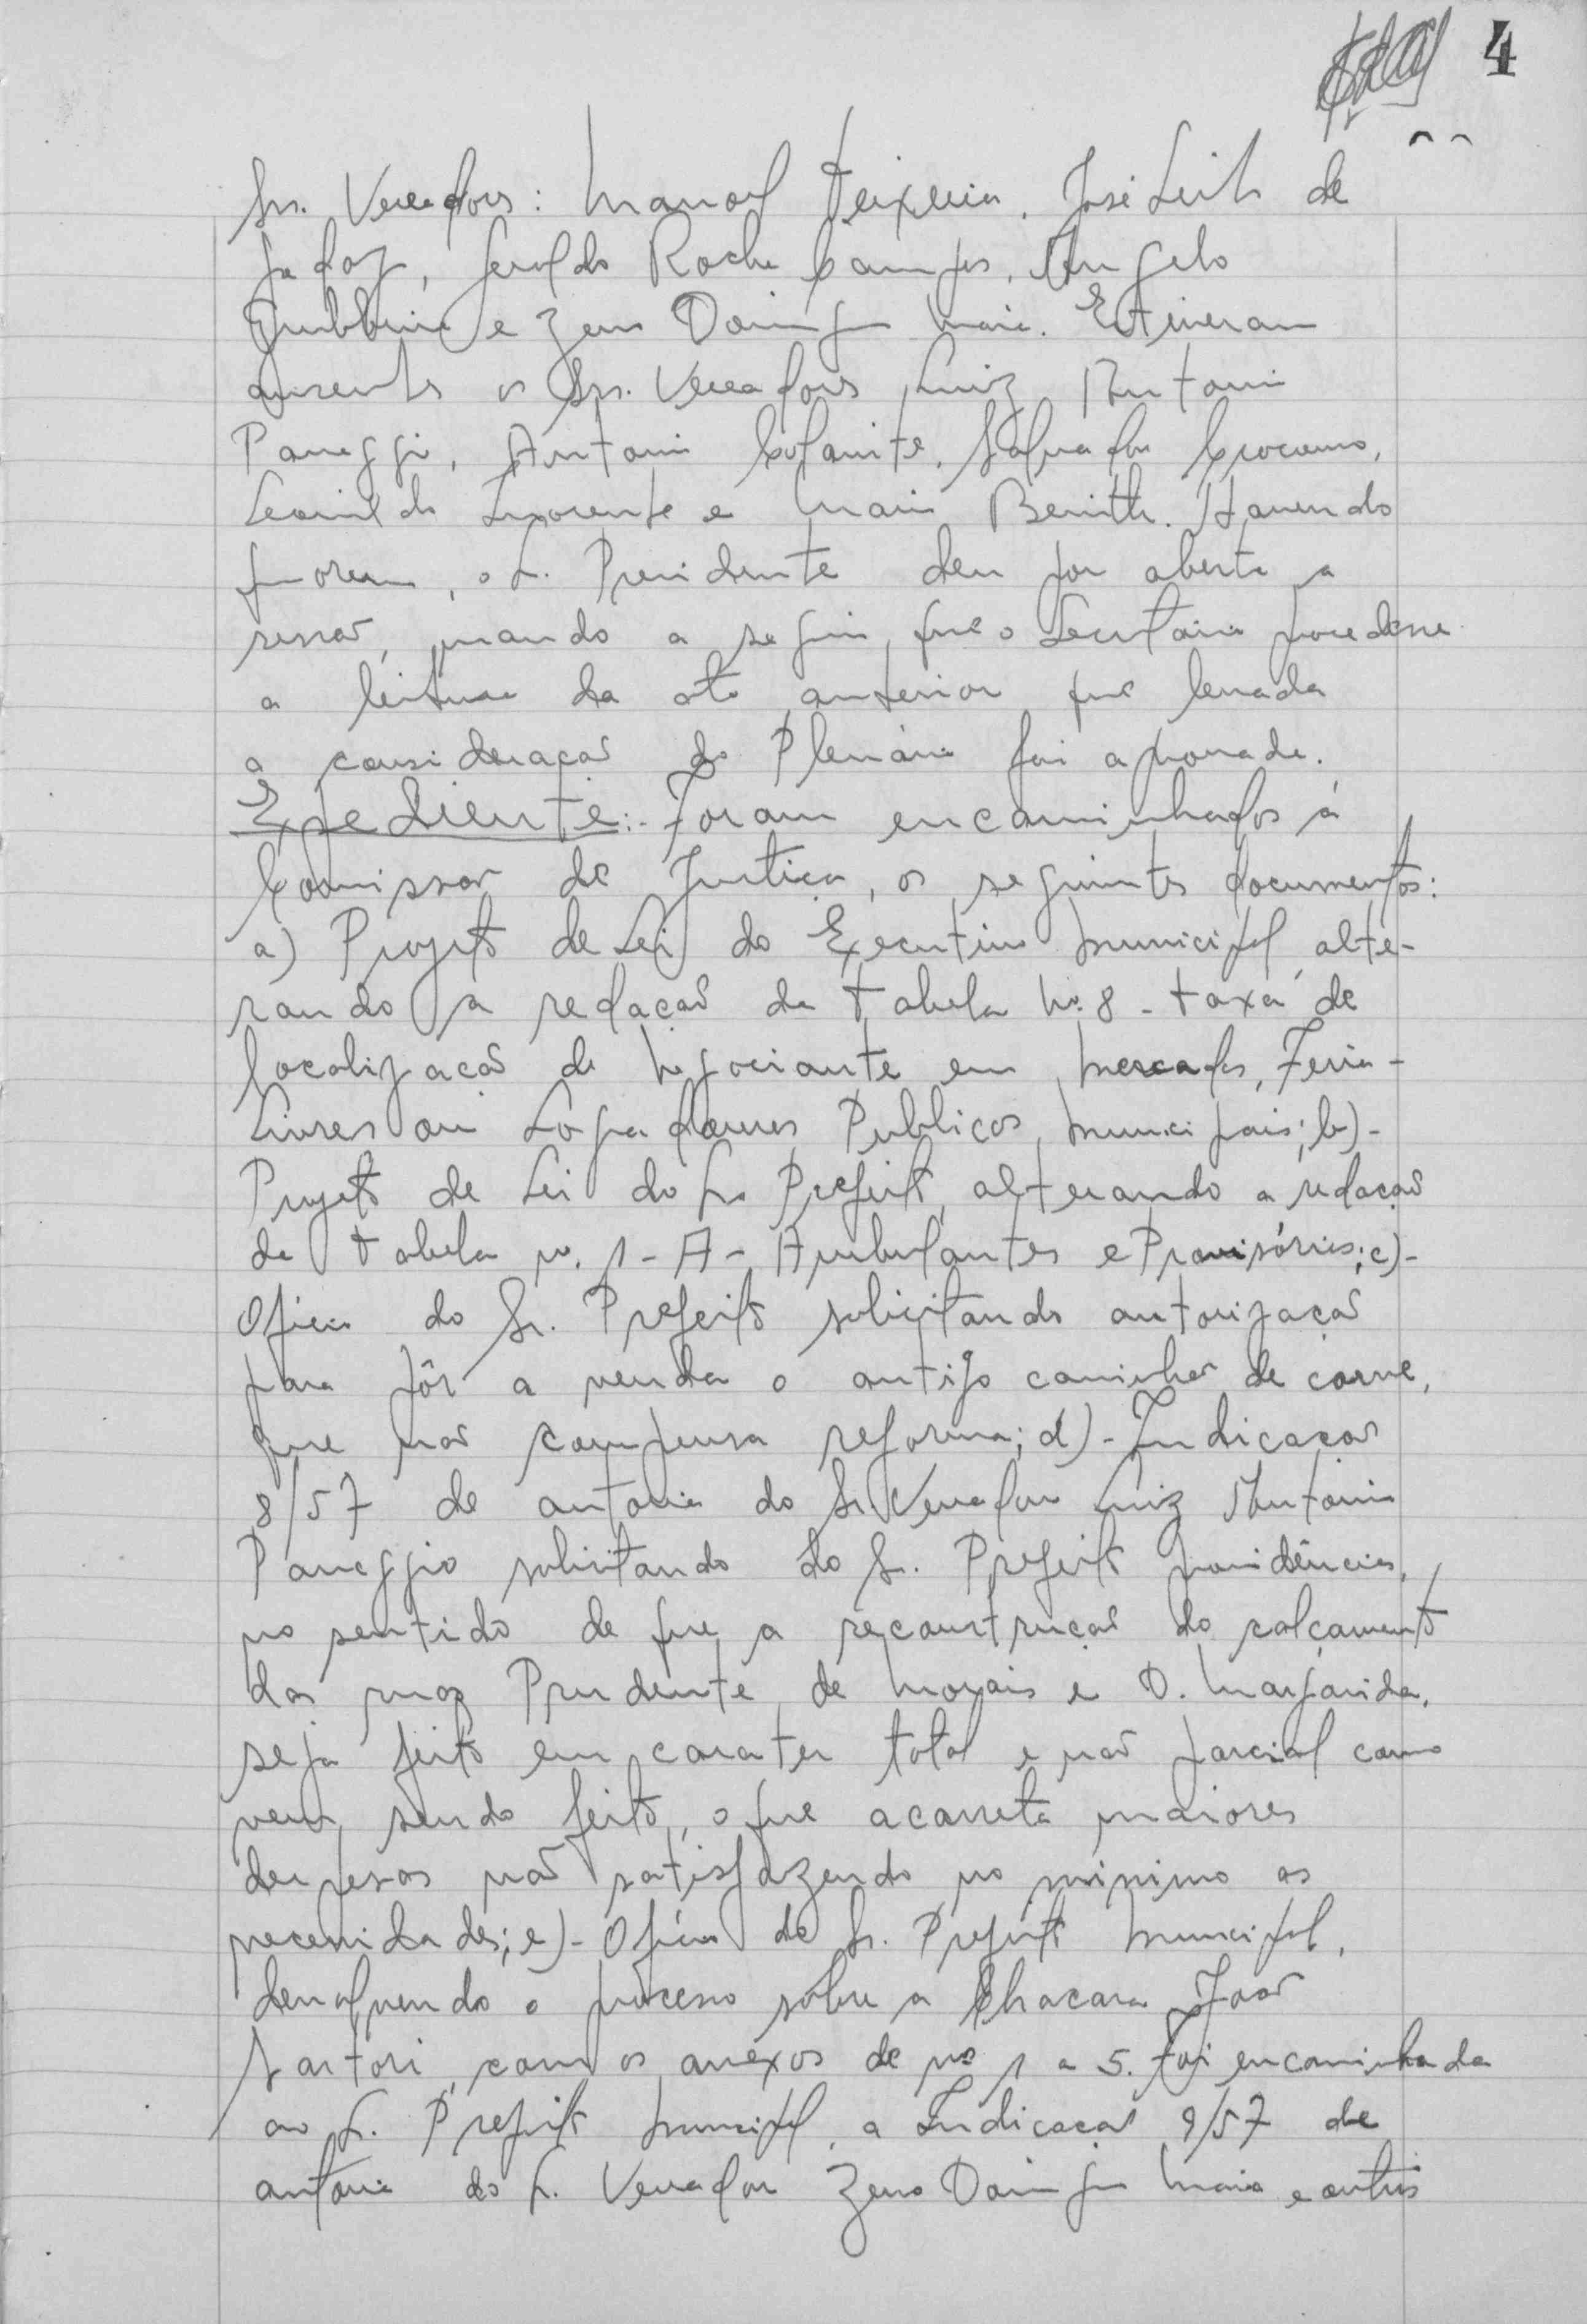 4
Srs. Vereadores: Manoel Teixeira, José Leite de
Godoy, Geraldo Rocha Campos, Angelo
e Zeno Domingos Maia. Estiveram
ausentes os Srs. Vereadores Luiz Antonio
Paneggio, Antonio Salvador
Leonildo e Mario Benith. Havendo
o Sr. Presidente deu por aberta a
sessão, a seguir, que o Secretario procedesse
a leitura da ata anterior que levada
a consideração do Plenário foi aprovada.
Expediente:- Foram encaminhados á
Comissão de Justiça, os seguintes documentos:
a) Projeto de Lei do Executivo Municipal, alte-
rando a redação da tabela nº 8 - taxa de
localização de Negociante em Mercados, Feira-
Livres ou Logradouros Publicos Municipais; b)-
Projeto de Lei do Sr Prefeito, alterando a redação
da tabela nº. 1 - A - Ambulantes e Provisórios; c)-
Oficio do Sr. Prefeito solicitando autorização
para pôr a venda o antigo caminhão de carne,
que não compensa reforma; d)- Indicação
8/57 de autoria do Sr. Vereador Luiz Antonio
Paneggio solicitando do Sr. Prefeito providências,
no sentido de que a reconstrução do calçamento
das ruas Prudente de Morais e D. Margarida,
seja feito em carater total e não parcial como
vem sendo feito, o que acarreta maiores
despesas não satisfazendo no minimo as
necessidades; e)- Oficio do Sr. Prefeito Municipal,
devolvendo o processo sôbre a Chacara João
Sartori, com os anexos de nº 1 a 5. Foi encaminhada
ao Sr. Prefeito Municipal, a Indicação 9/57 de
autoria do Sr. Vereador Zeno Domingos Maia e outros